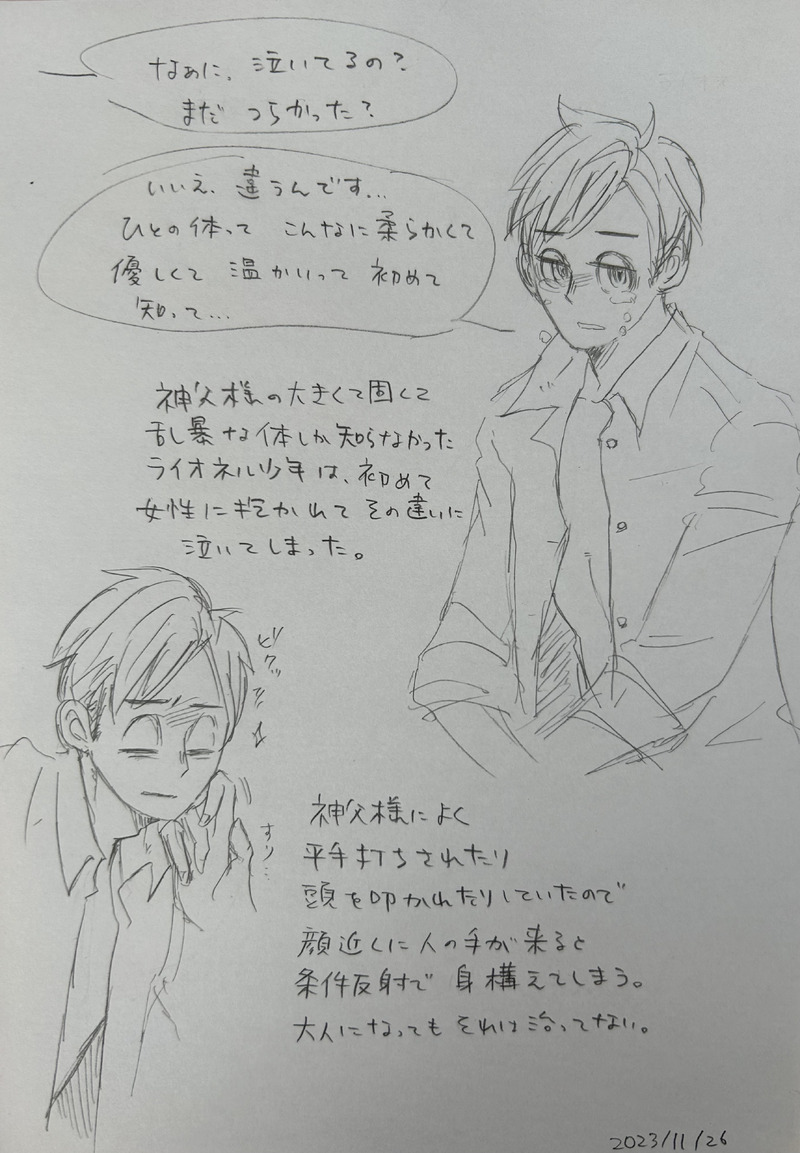 なぁに、泣いてるの?
まだ つらかった?
いいえ、違うんです…
ひとの体って こんなに柔らかくて
優しくて 温かいって 初めて
知って…
神父様の大きくて固くて
乱暴な体しか知らなかった
ライオネル少年は、初めて
女性に抱かれて その違いに
泣いてしまった。
ビクッ
すり…
神父様によく
平手打ちされたり
頭を叩かれたりしていたので
顔近くに人の手が来ると
条件反射で 身構えてしまう。
大人になっても それは治ってない。
2023/11/26